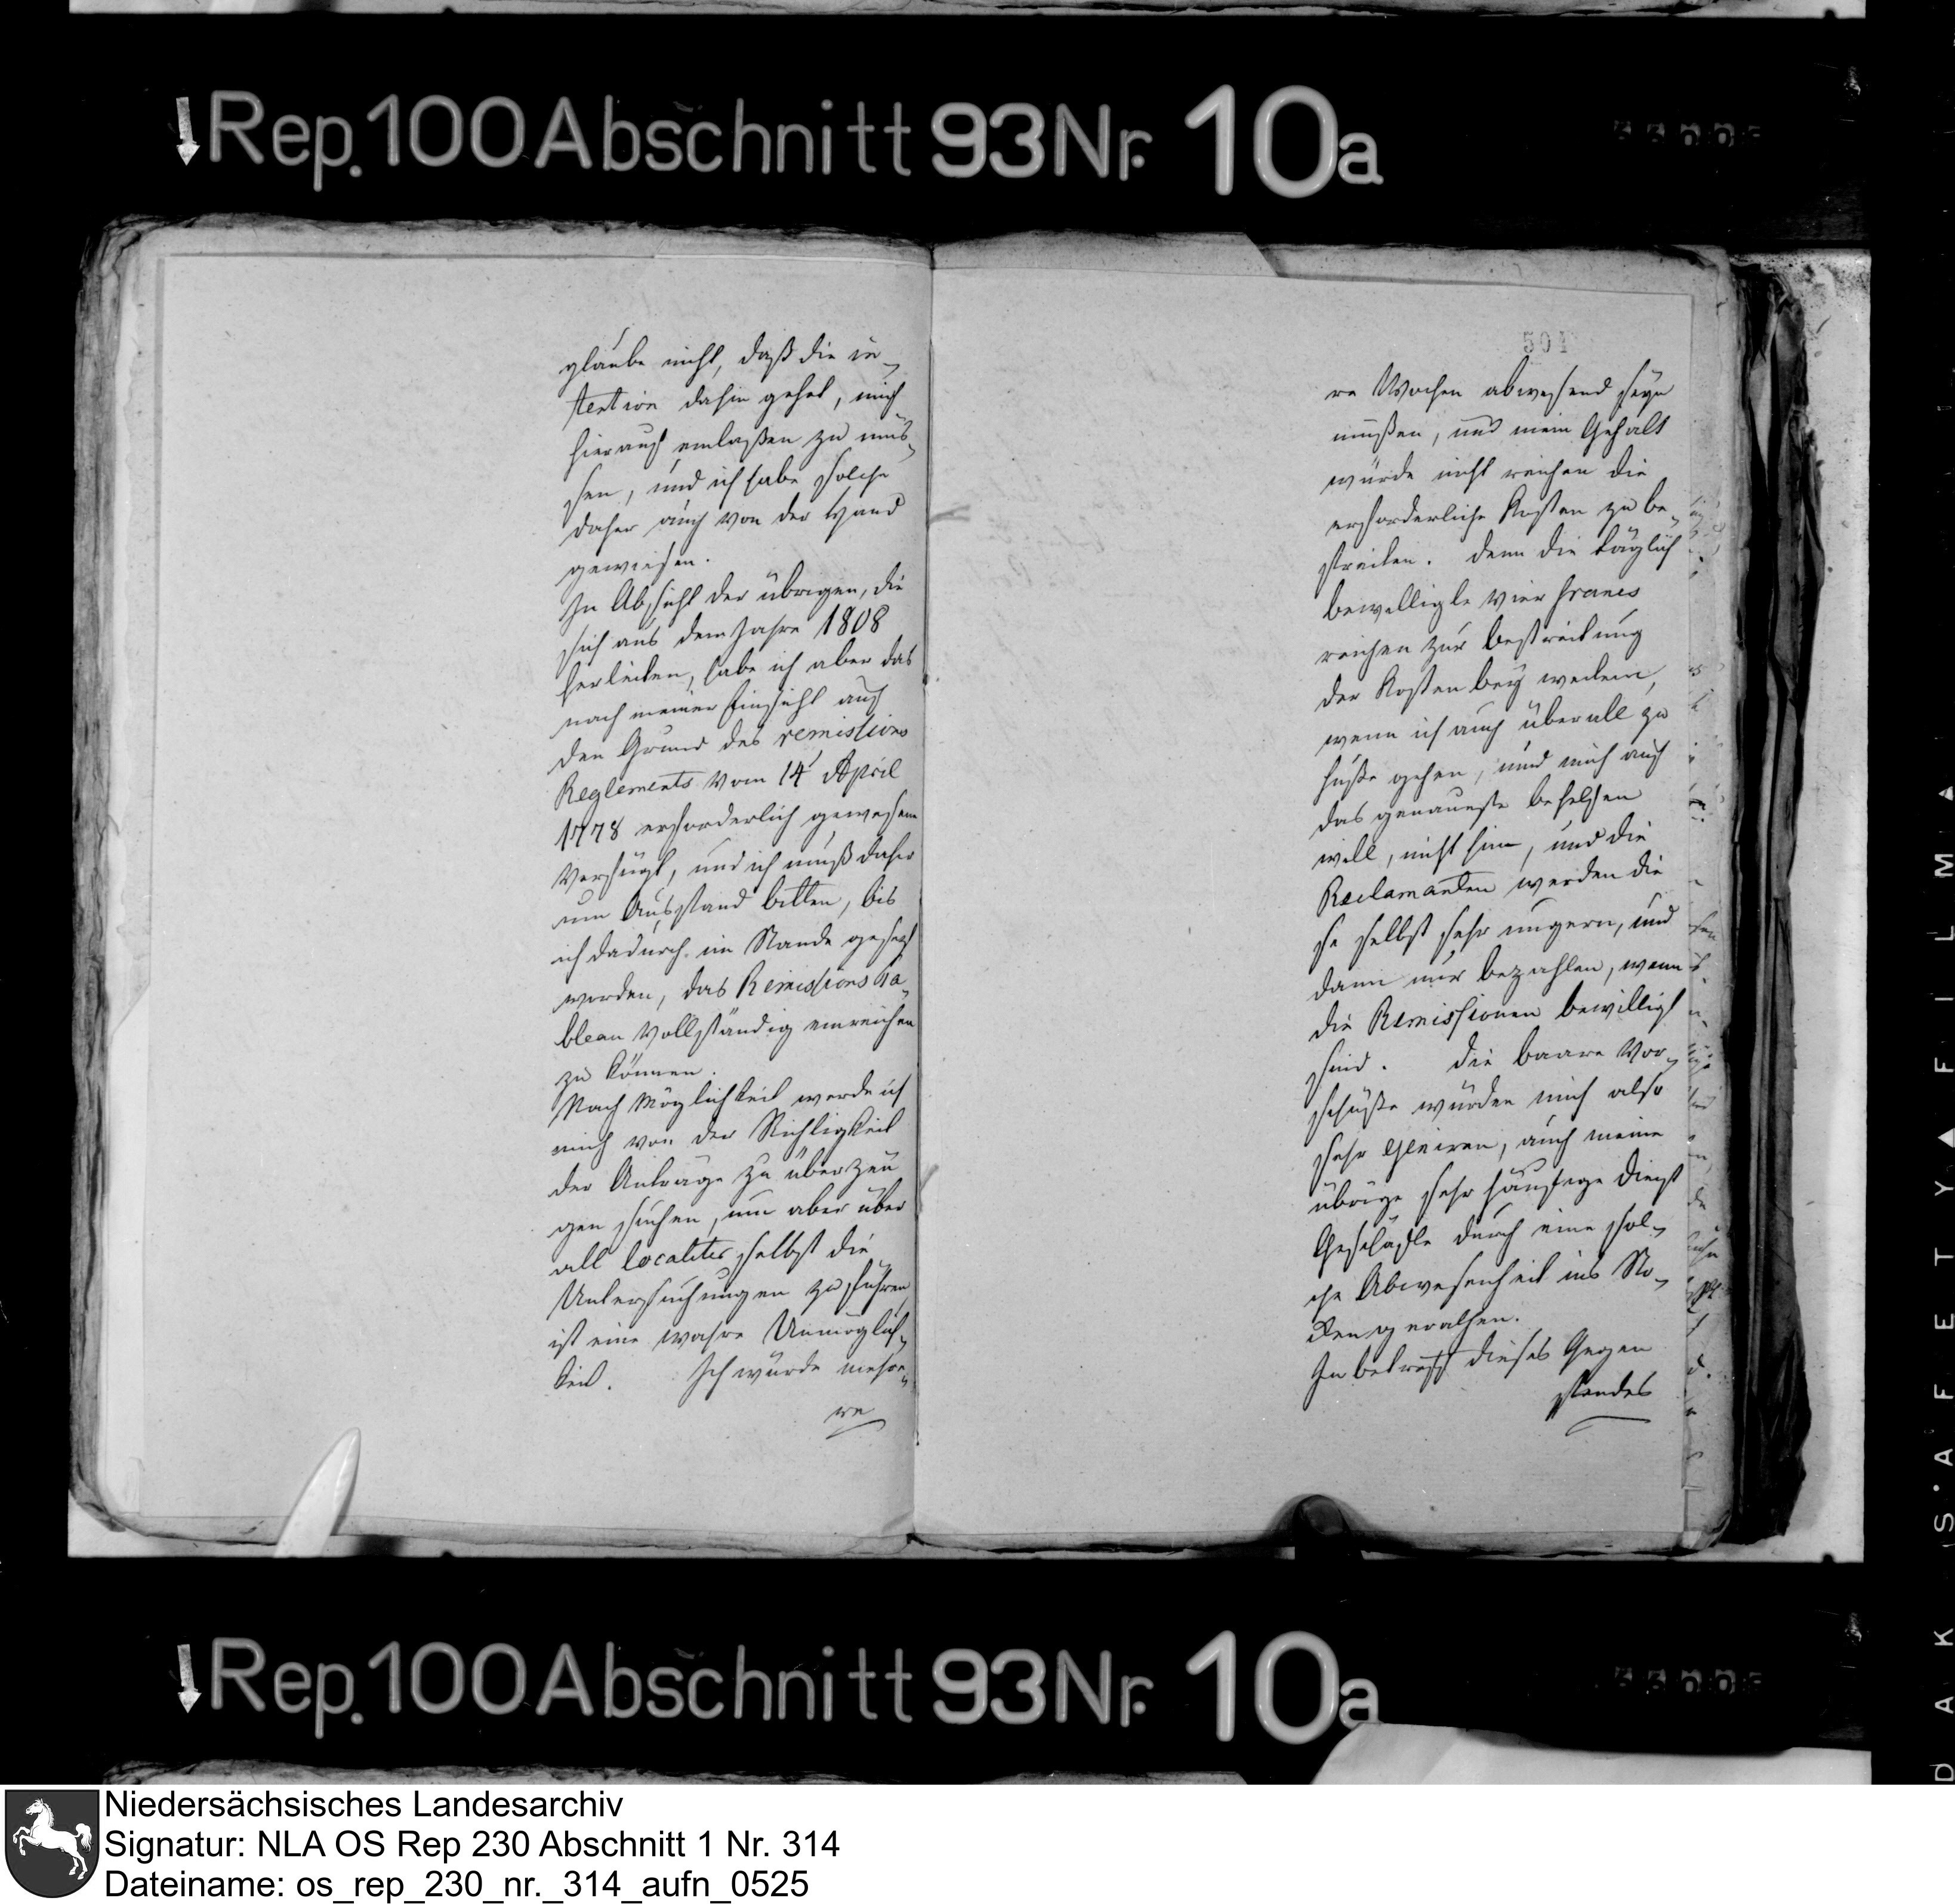 Rep. 100 Abschnitt 93 Nr. 10a
glaube nicht, daß die in¬
tention dahin gehet, mich
hierauf einlaßen zu müs¬
sen, und ich habe solche
daher auch von der Hand
gewiesen.
In Absicht der übrigen, die
sich aus dem Jahre 1808
herleiten, habe ich aber das
nach meiner Einsicht auf
den Grund des remissions
Reglements vom 14 April
1778 erforderlich gewesene
verfügt, und ich muß daher
um Ausstand bitten, bis
ich dadurch im Stande gesetzt
worden, das Remissions Ta¬
bleau vollständig einreichen
zu können.
Nach Möglichkeit werde ich
mich von der Richtigkeit
der Anträge zu überzeu
gen suchen, um aber über
all localiter selbst die
Untersuchungen zu führen
ist eine wahre Unmöglich¬
keit. Ich würde mehre¬
re
501
re Wochen abwesend seyn
müßen, und mein Gehalt
würde nicht reichen die
erforderliche Kosten zu be¬
streiten. Denn die täglich
bewilligte vier francs
reichen zur bestreitung
der Kosten bey weitem,
wenn ich auch überall zu
fuße gehen, und mich auf
das genaueste behelfen
will, nicht hin, und die
Reclamanten werden die
se selbst sehr ungern, und
dann nur bezahlen, wenn
die Remissionen bewilligt
sind. Die baare Vor¬
schüße würden mich also
sehr geniren, auch meine
übrige sehr häufige Dienst
Geschäfte durch eine sol¬
che Abwesenheit ins Sto¬
cken gerathen.
In betreff dieses Gegen
standes
Rep. 100 Abschnitt 93 Nr. 10a
SAFETY FILM
Niedersächsisches Landesarchiv
Signatur: NLA OS Rep 230 Abschnitt 1 Nr. 314
Dateiname: os_rep_230_nr._314_aufn_0525